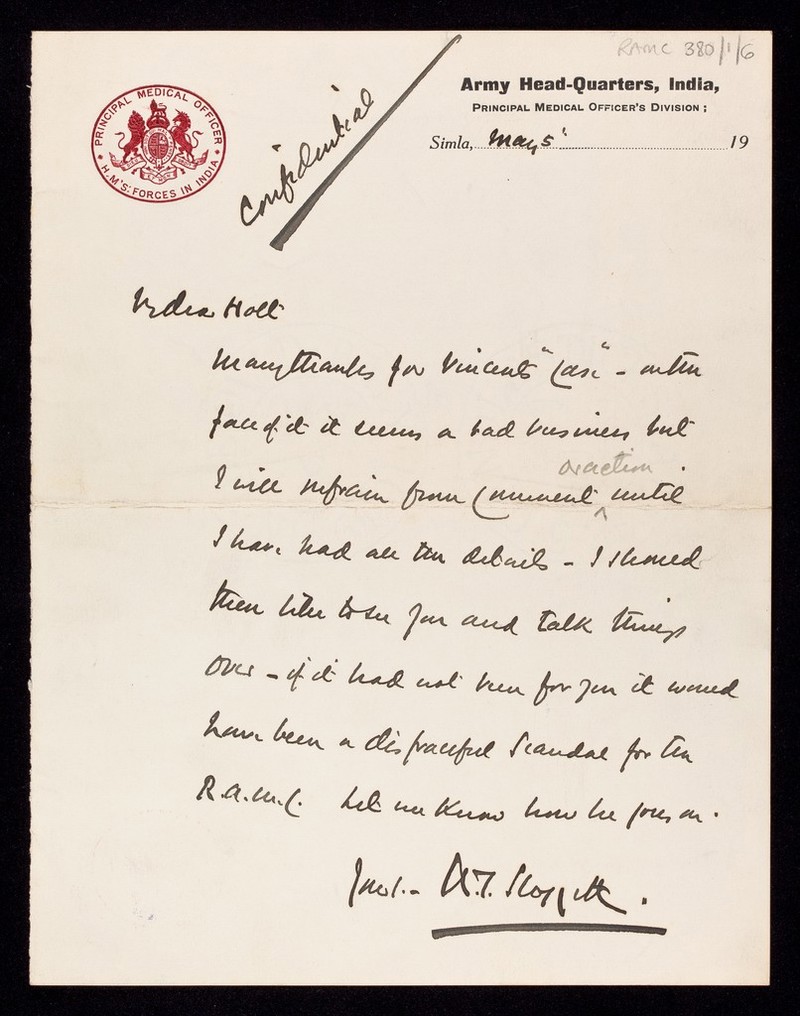 RAMC 380/1/6
PRINCIPAL MEDICAL OFFICER
H.M'S FORCES IN INDIA
Army Head-Quarters, India,
PRINCIPAL MEDICAL OFFICER'S DIVISION;
Simla, May 5 19
Confidential
My dear Holt
Many thanks for Vincents "Case" - on the
face of it it seems a bad business but
or action
I will refrain from Comment ^ until
I have had all the details - I should
then like to see you and talk things
over - if it had not been for you it would
have been a disgraceful Scandal for the
R.A.M.C. Let me Know how he goes on.
Yours - A.T. Sloggett.